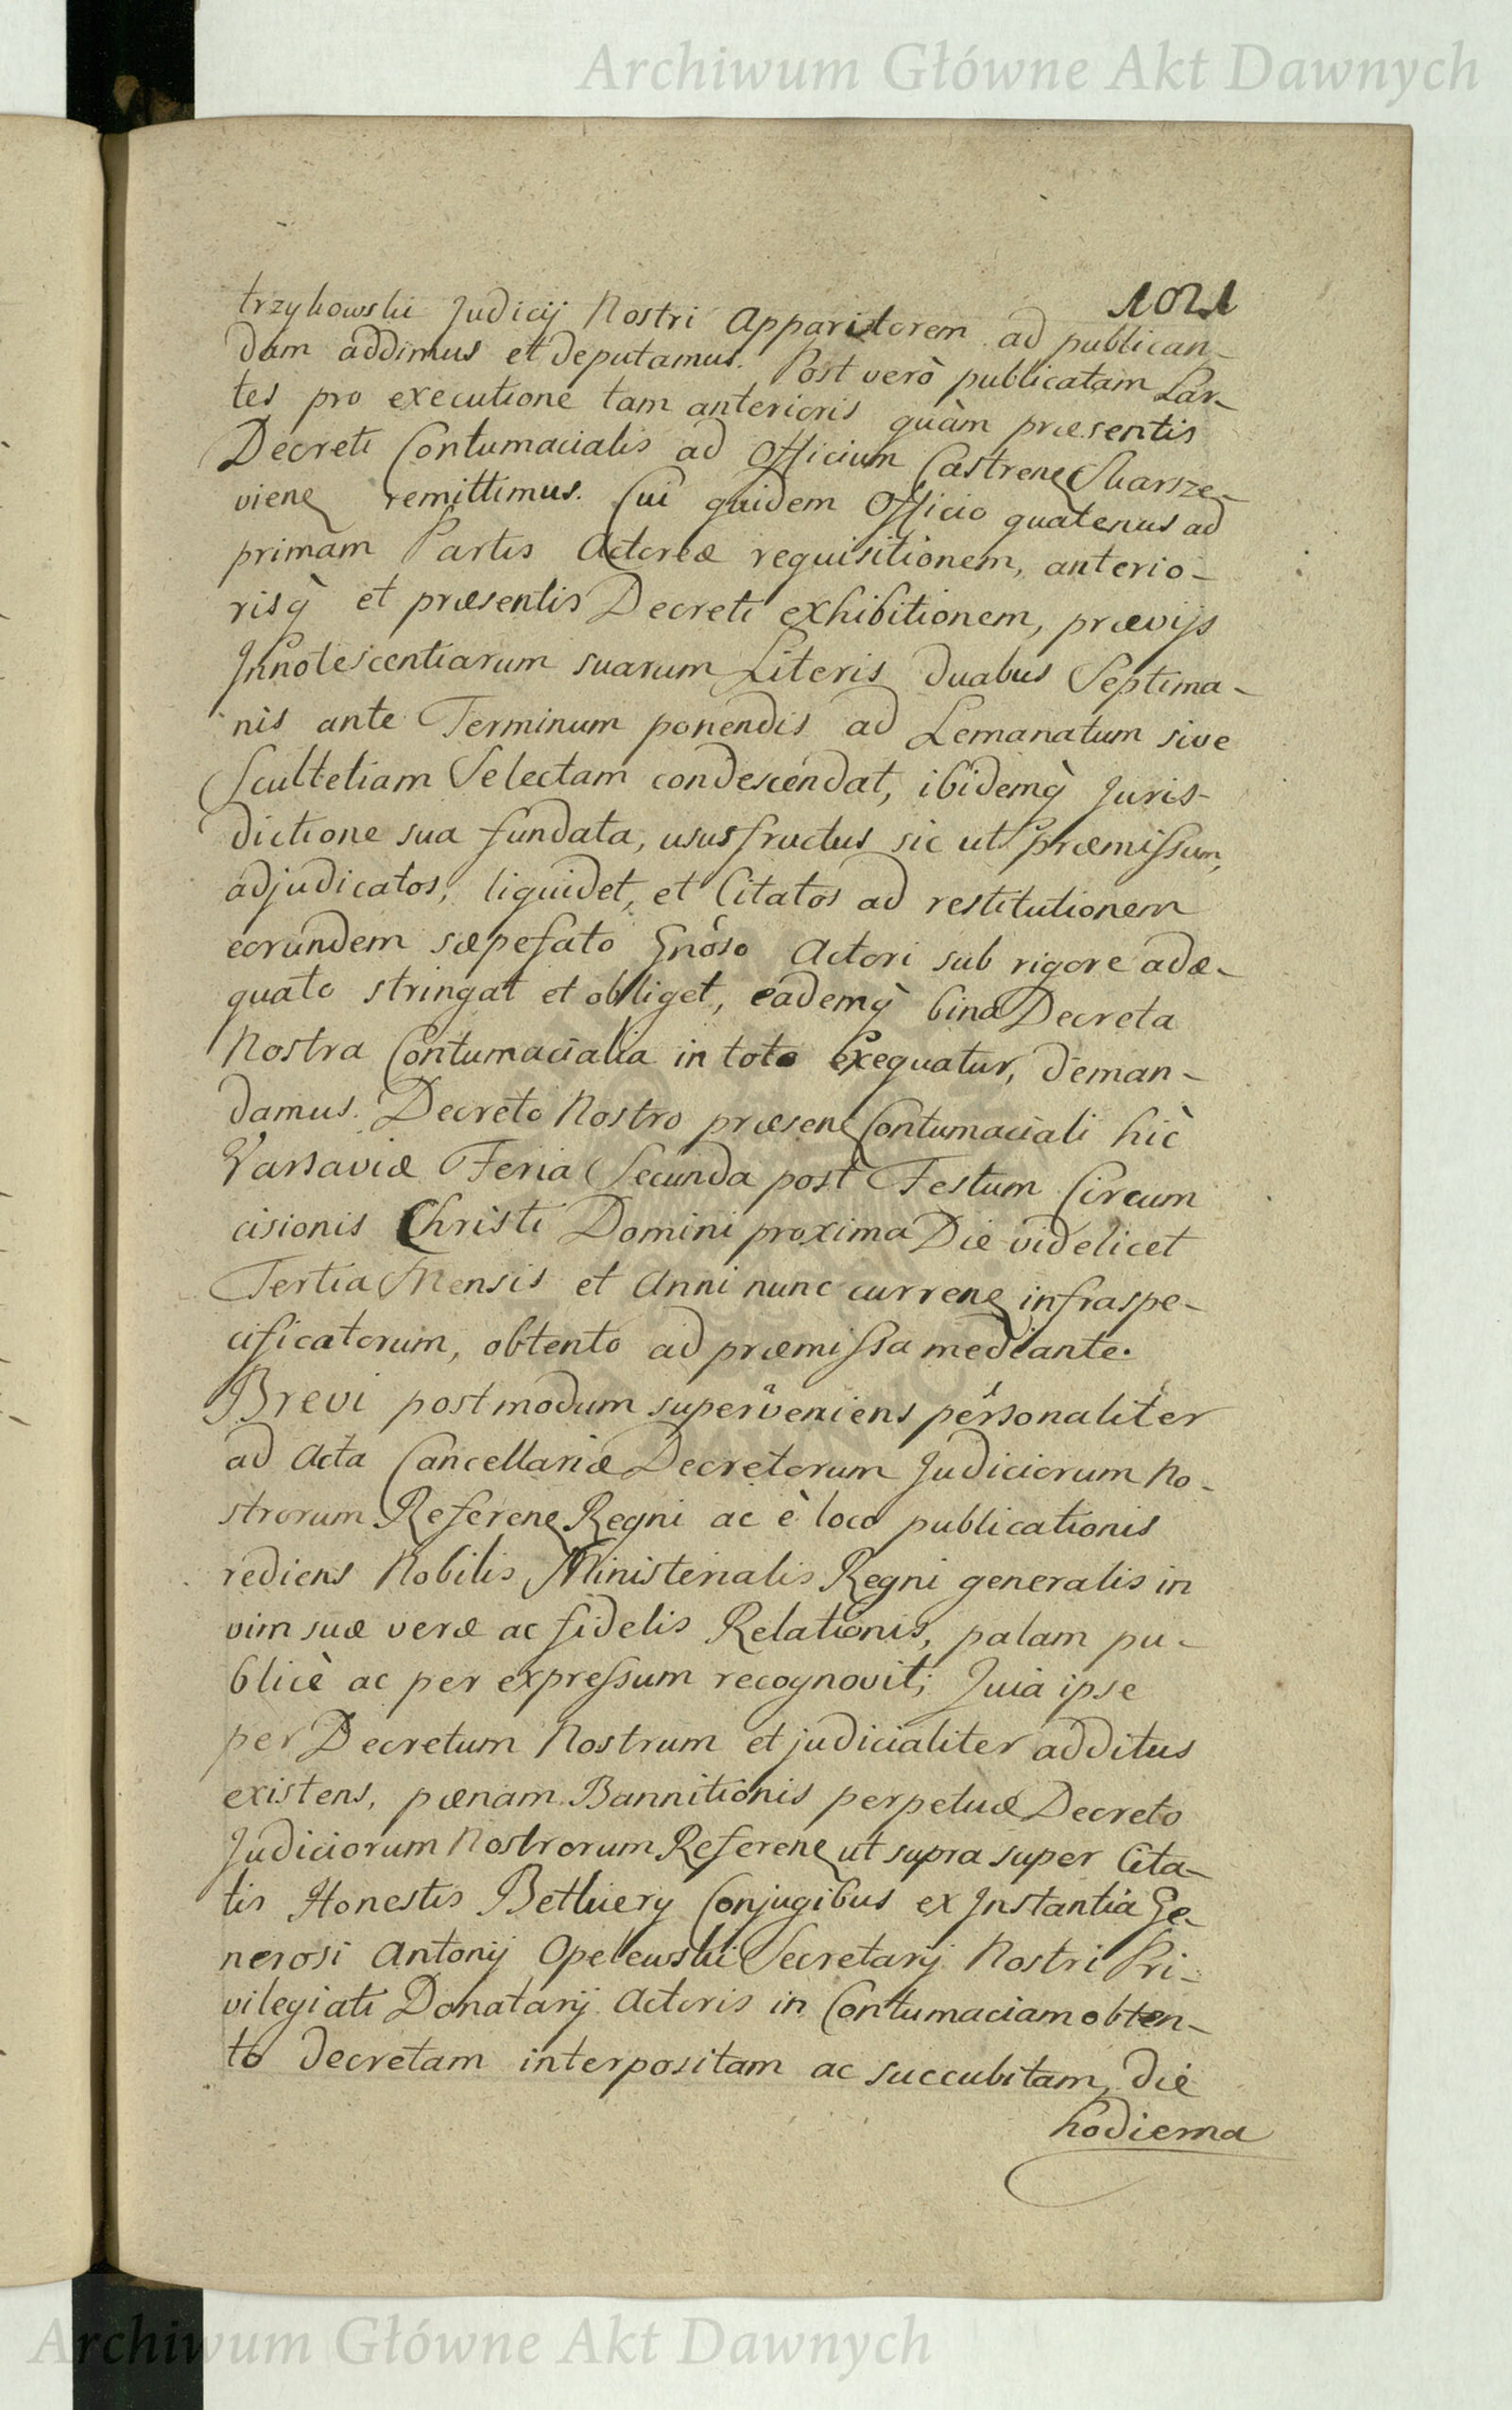 Archiwum Główne Akt Dawnych
1021
trzykowski Judicij Nostri Apparitorem ad publican-
dam addimus et deputamus. Post verò publicatam Par-
tes pro executione tam anterioris quàm præsentis
Decreti Contumacialis ad Officium Castrene Skarsze-
viene remittimus. Cui quidem Officio quatenus ad
primam Partis Actoreæ requisitionem, anterio-
risq̀ et præsentis Decreti exhibitionem, prævijs
Innotescentiarum suarum Literis duabus Septima-
nis ante Terminum ponendis ad Lemanatum sive
Scultetiam Selectam condescendat, ibidemq̀ Juris-
dictione sua fundata, usus fructus sic ut præmissum,
adjudicatos, liquidet, et Citatos ad restitutionem
eorundem sæpefato Gnoso Actori sub rigore adæ-
quato stringat et obliget, eademq̀ bina Decreta
Nostra Contumacialia in toto exequatur, deman-
damus. Decreto Nostro præsene Contumaciali hìc
Varsaviæ Feria Secunda post Festum Circum
cisionis Christi Domini proxima Die videlicet
Tertia Mensis et Anni nunc currene infraspe-
cificatorum, obtento ad præmissa mediante.
Brevi postmodum superveniens personaliter
ad Acta Cancellariæ Decretorum Judiciorum No-
strorum Referene Regni ac è loco publicationis
rediens Nobilis Ministerialis Regni generalis in
vim suæ veræ ac fidelis Relationis, palam pu-
blicè ac per expressum recognovit; Quia ipse
per Decretum Nostrum et judicialiter additus
existens, pænam Bannitionis perpetuæ Decreto
Judiciorum Nostrorum Referene ut supra super Cita-
tis Honestis Betkiery Conjugibus ex Instantia Ge-
nerosi Antonij Opelewski Secretarij Nostri Pri-
vilegiati Donatarij Actoris in Contumaciam obten-
to decretam interpositam ac succubitam, die
hodierna
Archiwum Główne Akt Dawnych